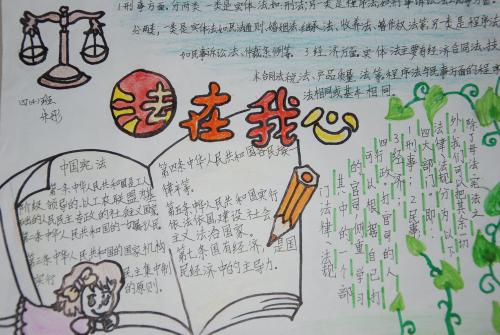 1.刑事方面,分两类一类是实体法,如:刑法;另一类是程序法如刑事诉讼法
分两类,一类是实体法如民法通则、婚姻法、继承法、收养法、著作权法等;另一类是程序
如民事诉讼法、仲裁条例等。3.经济方面,实体法主要有经济合同法、技
术合同法税法、产品质量法等,程序法与民事方面的程序
法相同或基本相同.
四(4)班
法在我心
中国宪法
第一条中华人民共和国是工人
阶级领导的,以工农联盟为基
础的人民民主专政的社会主义国家
第二条中华人民共和国的一切权力
第三条中华人民共和国的国家机构
实行民主集中制
的原则。
第四条中华人民共和国各民族一
律平等。
第五条中华人民共和国实行
依法依国建设社会
主义法治国家.
第七条国有经济,是国
民经济中的主导力.
除了母法宪法之
外,我们可以把其余的
法律、法规分为以下
四大部门即:1
刑事;2民事;
3经济;4行政
可以根据自己打
官司,从打官司的人
其中的侧重学习
一个部
门法律、法规